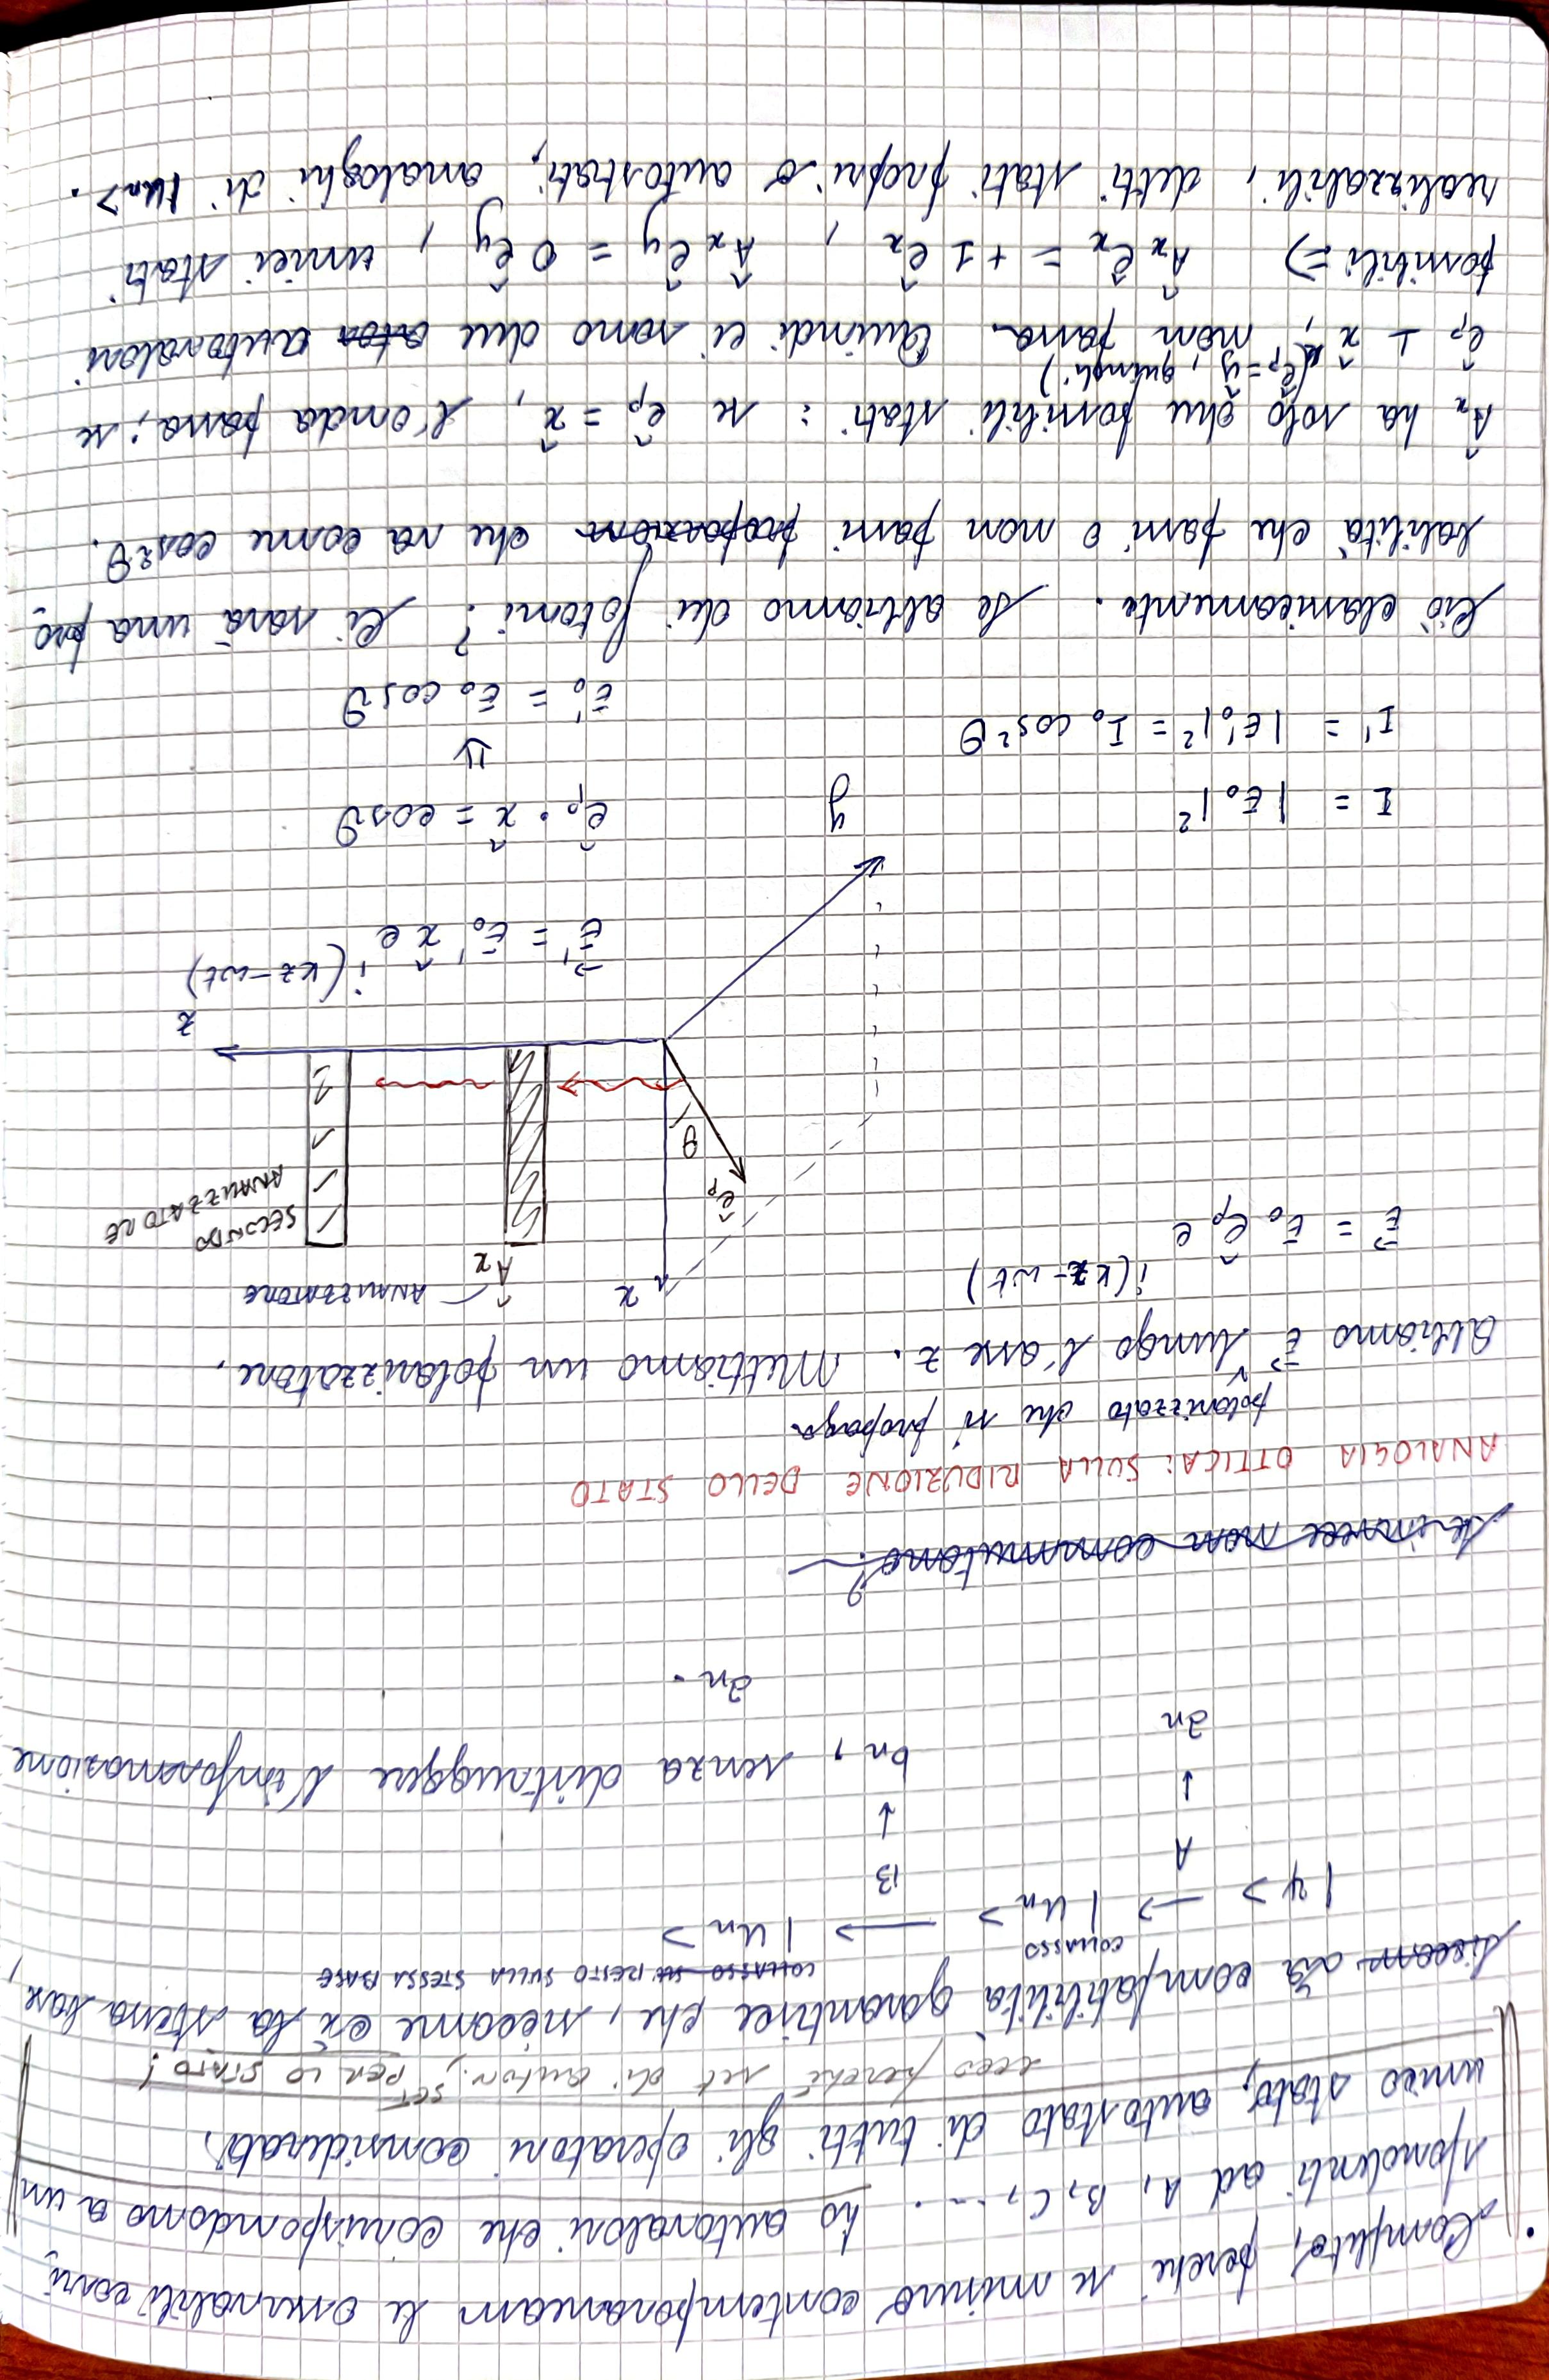 • Completo, perché se misuro contemporaneam le osservabili corri
spondenti ad A, B, C, ... ho autovalori che corrispondono a un
unico stato, autostato di tutti gli operatori considerati.
ecco perché set di autov., SET PER LO STATO!
diciam La compatibilità garantisce che, siccome c'è la stessa base,
COLLASSO
COLLASSO RESTO SULLA STESSA BASE
|ψ> → |un> → |un>
A B
↓ ↓
an bn, senza distruggere l'informazione
an.
Se invece non commutano?
ANALOGIA OTTICA: SULLA RIDUZIONE DELLO STATO
polarizzato che si propaga
Abbiamo E⃗ lungo l'asse z. Mettiamo un polarizzatore.
E⃗ = E₀ êₚ e^i(kz-ωt)
x
Âx
ANALIZZATORE
SECONDO
ANALIZZATORE
êₚ
θ
z
y
E⃗' = E₀' x̂ e^i(kz-ωt)
I = |E₀|²
êₚ · x̂ = cosθ
⇓
I' = |E₀'|² = I₀ cos²θ
E₀' = E₀ cosθ
Ciò classicamente. Se abbiamo dei fotoni? Ci sarà una pro
babilità che passi o non passi proporzion che va come cos²θ.
Âx ha solo due possibili stati: se êₚ = x̂, l'onda passa; se
(êₚ = ŷ, quindi)
êₚ ⊥ x̂, non passa. Quindi ci sono due autovalori
possibili ⇒ Âx êx = +1 êx, Âx êy = 0 êy, unici stati
realizzabili, detti stati propri o autostati, analoghi di |un>.